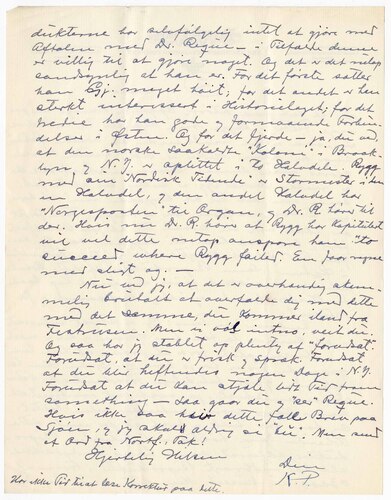 dukterne har selvfølgelig intet at gjøre med
Aftalen med Dr. Reque — i Tilfælde denne
er villig til at gjøre noget. Og det er det netop
sandsynlig at han er. For det første sætter
han Gj. meget høit; for det andet er han
sterkt interessert i Historielaget; for det
tredie har han gode & formaaende Forbin-
delser i Østen. Og for det fjerde — ja, du ved
at den norske saakaldte "Koloni" i Brook-
lyn & N.Y. er splittet i to Halvdele. Rygg
med sin "Nordisk Tidende" er Stormester i den
en Halvdel, & den anden Halvdel har
"Norgesposten" til Organ, & Dr. R. hører til
der. Hvis nu Dr. R. hører at Rygg har kapitulert
vil vel dette netop anspore ham "to
succeed where Rygg failed. En faar regne
med sligt og. —
Nu ved jeg, at det er overhændig
brutalt at overfalde dig med dette
med det samme, du kommer iland fra
Men is vos intns, veit du.
Og saa har jeg stablet op plenty af "forudsat".
Forudsat, at du er frisk & sprek. Forudsat
at du blir heftendes nogen Dage i N.Y.
Forudsat at du kan stjæle lidt Tid from
something — saa gaar du & "ser" Reque.
Hvis ikke saa dette Brev paa
Sjøen, & jeg skal aldrig si "Su". Men send
et Ord fra Northf. Tak!
Hjertelig Hilsen
Din
K. P.
Har ikke Tid til at læse Korrektur paa dette